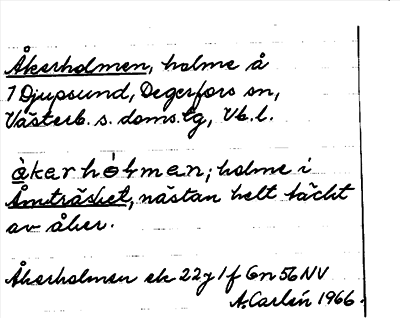 Åkerholmen, holme å
1 Djupsund, Degerfors sn,
Västerb. s. doms.lg, Vb.l.
åkarhólmen; holme i
Åmträsket, nästan helt täckt
av åker.
Åkerholmen ek 22 J 1 f Gn 56 NV
A. Carlén 1966.